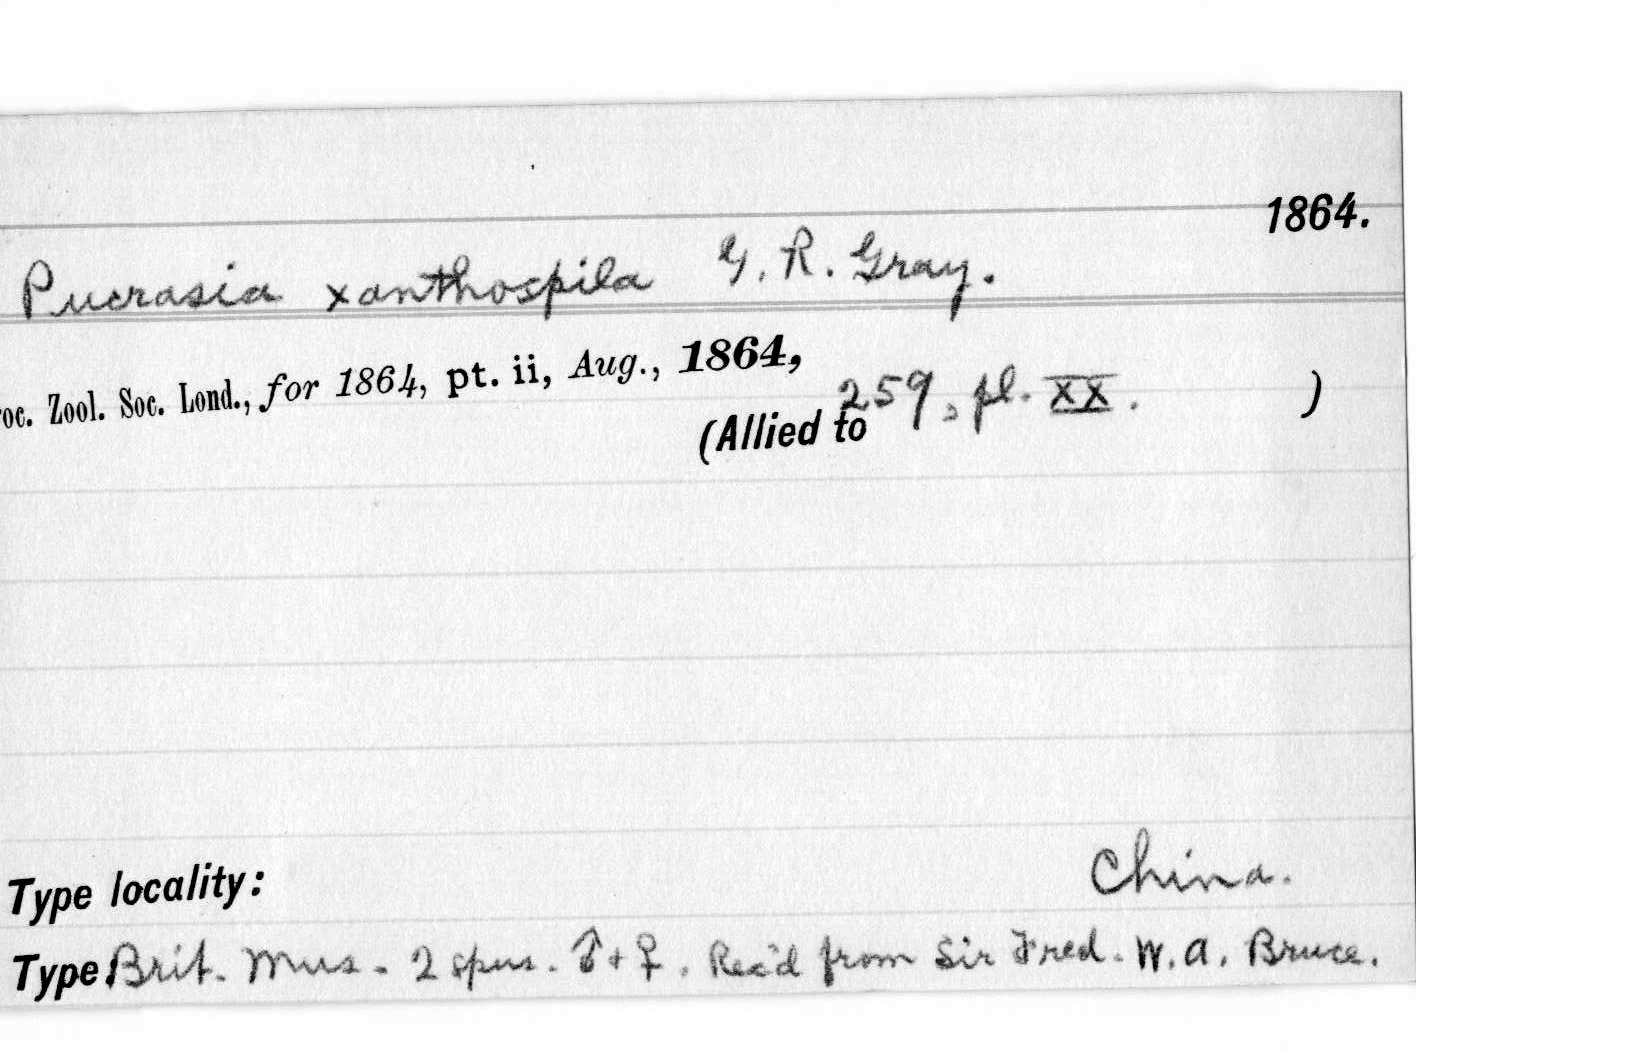 1864.
Pucrasia xanthospila G. R. Gray.
oc. Zool. Soc. Lond., for 1864, pt. ii, Aug., 1864,
259, pl. XX.
(Allied to )
Type locality: China.
Type: Brit. Mus. - 2 spms. ♂ + ♀. Rec'd from Sir Fred. W. A. Bruce.